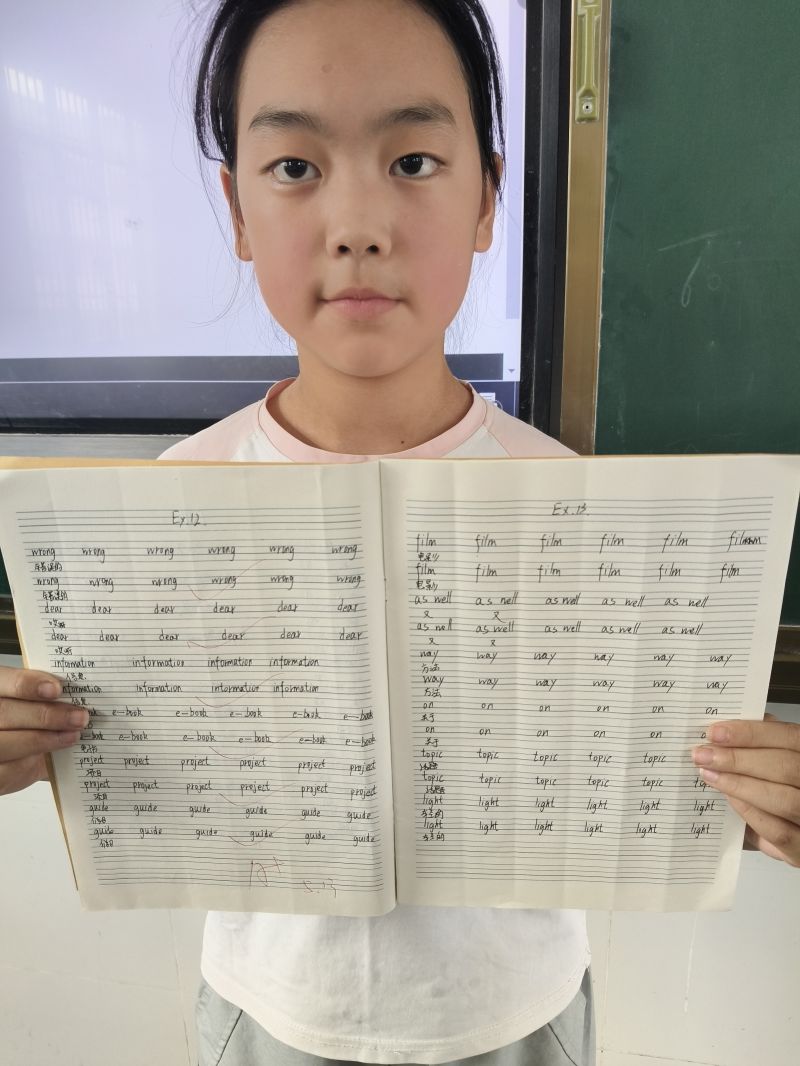 Ex.12.
wrong wrong wrong wrong wrong wrong
错误的
wrong wrong wrong wrong wrong wrong
错误的
dear dear dear dear dear dear
哎呀
dear dear dear dear dear dear
哎呀
information information information information
信息
information information information information
信息
e-book e-book e-book e-book e-book
e-book e-book e-book e-book e-book e-book
电子书
project project project project project project
项目
project project project project project project
项目
guide guide guide guide guide guide
guide guide guide guide guide guide
A+
5.13
Ex.13.
film film film film film film
电影
film film film film film film
电影
as well as well as well as well as well
又 又
as well as well as well as well as well
又 又
way way way way way way
方法
way way way way way way
方法
on on on on on on
关于
on on on on on
关于
topic topic topic topic topic topic
话题
topic topic topic topic topic
话题
light light light light light light
light light light light light light